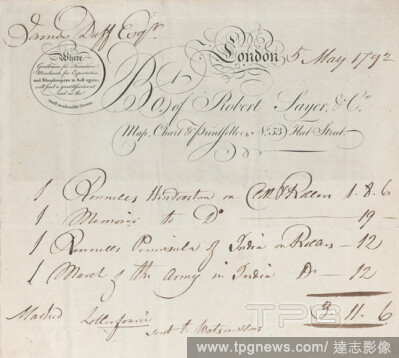 James Duff Esqr.
London 5 May 1792
Where
Gentlemen for Furniture
Merchants for Exportation
and Shopkeepers to Sell again
will find a great Choice of
and on the
most reasonable Terms
Bot. of Robert Sayer, & Co.
Map, Chart & Printsellers No. 53 Fleet Street
1 Rennells Hindoostan on & Rollers 1 . 8 . 6
1 Memoir to Do — 19 —
1 Rennells Peninsula of India on Rollers — 12
1 March of the Army in India Do — 12
3 11 . 6
Marked
sent to
TPG
www.tpgnews.com/ 達志影像